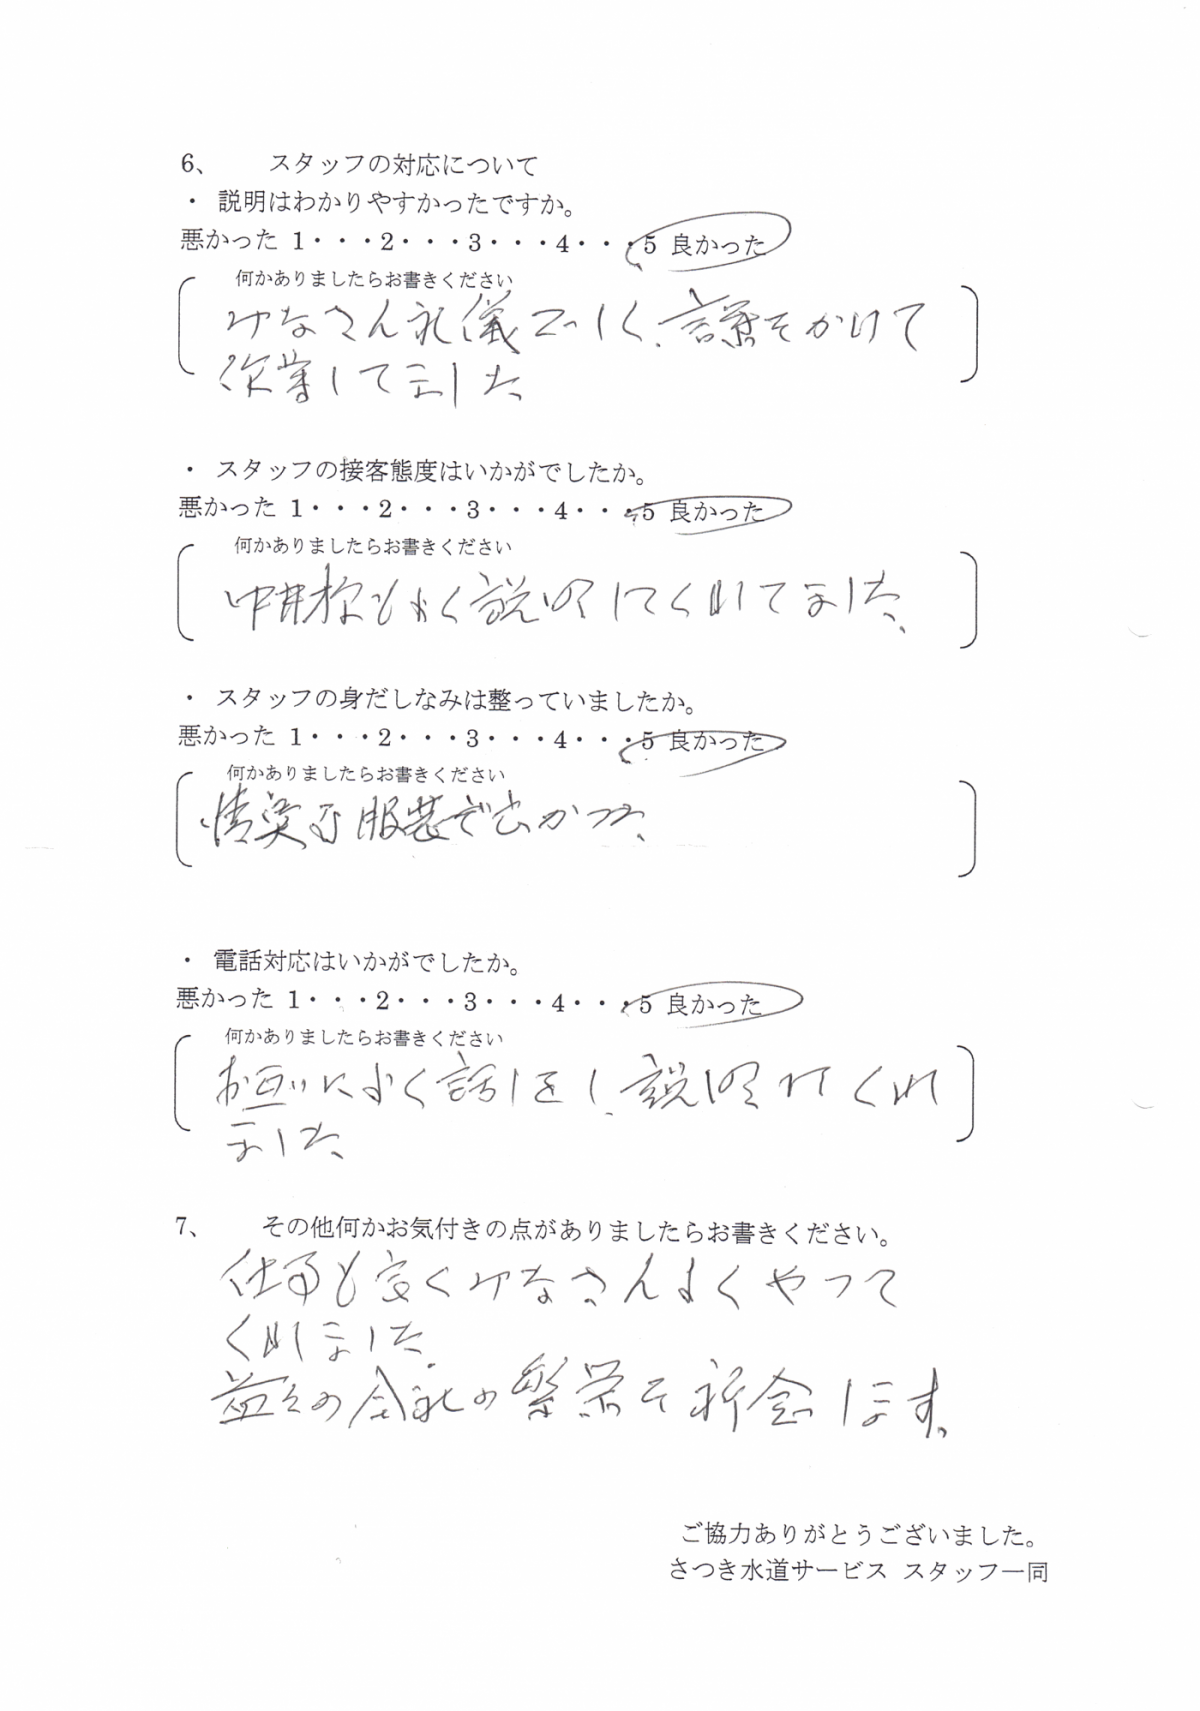 6、 スタッフの対応について
・ 説明はわかりやすかったですか。
悪かった 1・・・2・・・3・・・4・・・5 良かった
何かありましたらお書きください
みなさん礼儀正しく、言葉をかけて
作業してました
・ スタッフの接客態度はいかがでしたか。
悪かった 1・・・2・・・3・・・4・・・5 良かった
何かありましたらお書きください
中井様もよく説明してくれてました、
・ スタッフの身だしなみは整っていましたか。
悪かった 1・・・2・・・3・・・4・・・5 良かった
何かありましたらお書きください
清潔な服装で良かった、
・ 電話対応はいかがでしたか。
悪かった 1・・・2・・・3・・・4・・・5 良かった
何かありましたらお書きください
お互いによく話しをし、説明してくれ
ました、
7、 その他何かお気付きの点がありましたらお書きください。
仕事も良くみなさんよくやって
くれました、
益々の会社の繁栄を祈念します。
ご協力ありがとうございました。
さつき水道サービス スタッフ一同